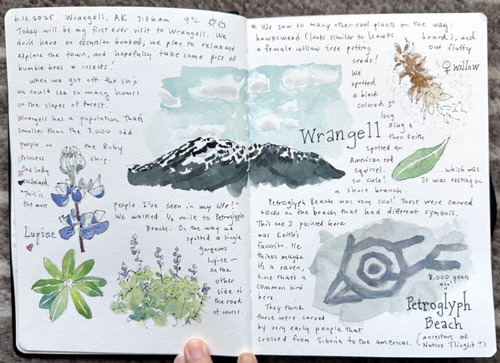 6.10.2025 Wrangell, AK 7:38am 9°C
Today will be my first ever visit to Wrangell. We
don't have an excursion booked; we plan to relax and
explore the town, and hopefully take some pics of
bumble bees & insects!
When we got off the ship
we could see so many homes
on the slopes of forest.
Wrangell has a population that's
smaller than the 3,000 odd
people on the Ruby
Princess ship.
One lady
"This is
the most
people I've seen in my life!"
We walked 1/2 mile to Petroglyph
Beach. On the way we
spotted a single
gorgeous
lupine —
on the
other
side of
the road
of course.
Lupine
We saw so many other cool plants on the way:
hawksweed (looks similar to hawks beard), and
a female willow tree potting out fluffy
seeds!
We
spotted
a black
colored 3"
long
slug &
then Keith
spotted an
American red
squirrel,
so cute!
...which was
It was resting on
a short branch.
♀ willow
Wrangell
Petroglyph Beach was very cool! These were carved
rocks on the beach that had different symbols.
This one I painted here
was Keith's
favorite. He
thinks maybe
it's a raven,
since that's a
common bird
here.
They think
these were carved
by very early people that
crossed from Siberia to the americas.
(ancestors of
Native Tlingit?)
8,000 years
ago!
Petroglyph
Beach